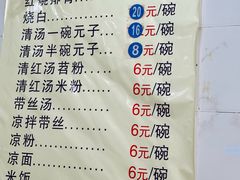 红烧排骨
烧白............20元/碗
清汤一碗元子...16元/碗
清汤半碗元子...8元/碗
清红汤苕粉......6元/碗
清红汤米粉......6元/碗
带丝汤............6元/碗
凉拌带丝.........6元/碗
凉粉...............6元/碗
凉面...............6元/碗
米饭